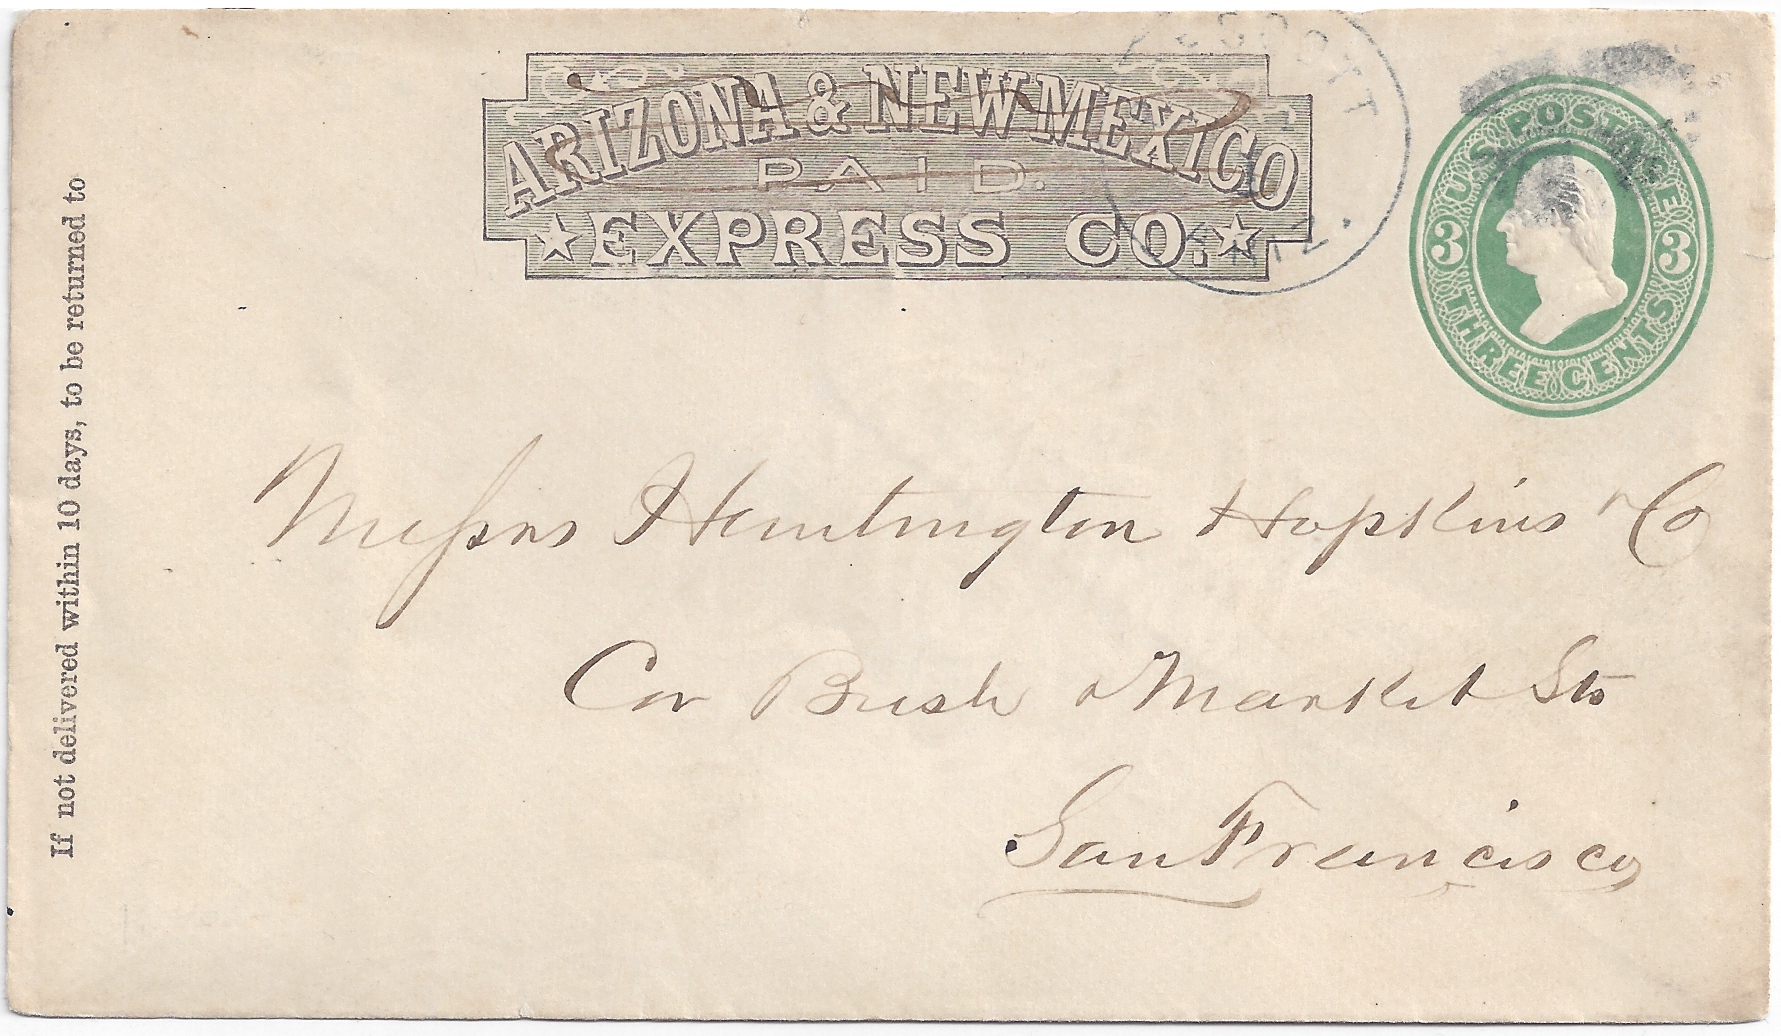 ARIZONA & NEW MEXICO
PAID.
★ EXPRESS CO. ★
ESCOTT
ARIZ.
U.S. POSTAGE
3 3
THREE CENTS
If not delivered within 10 days, to be returned to
Messrs Huntington Hopkins & Co
Cor Bush & Market Sts
San Francisco